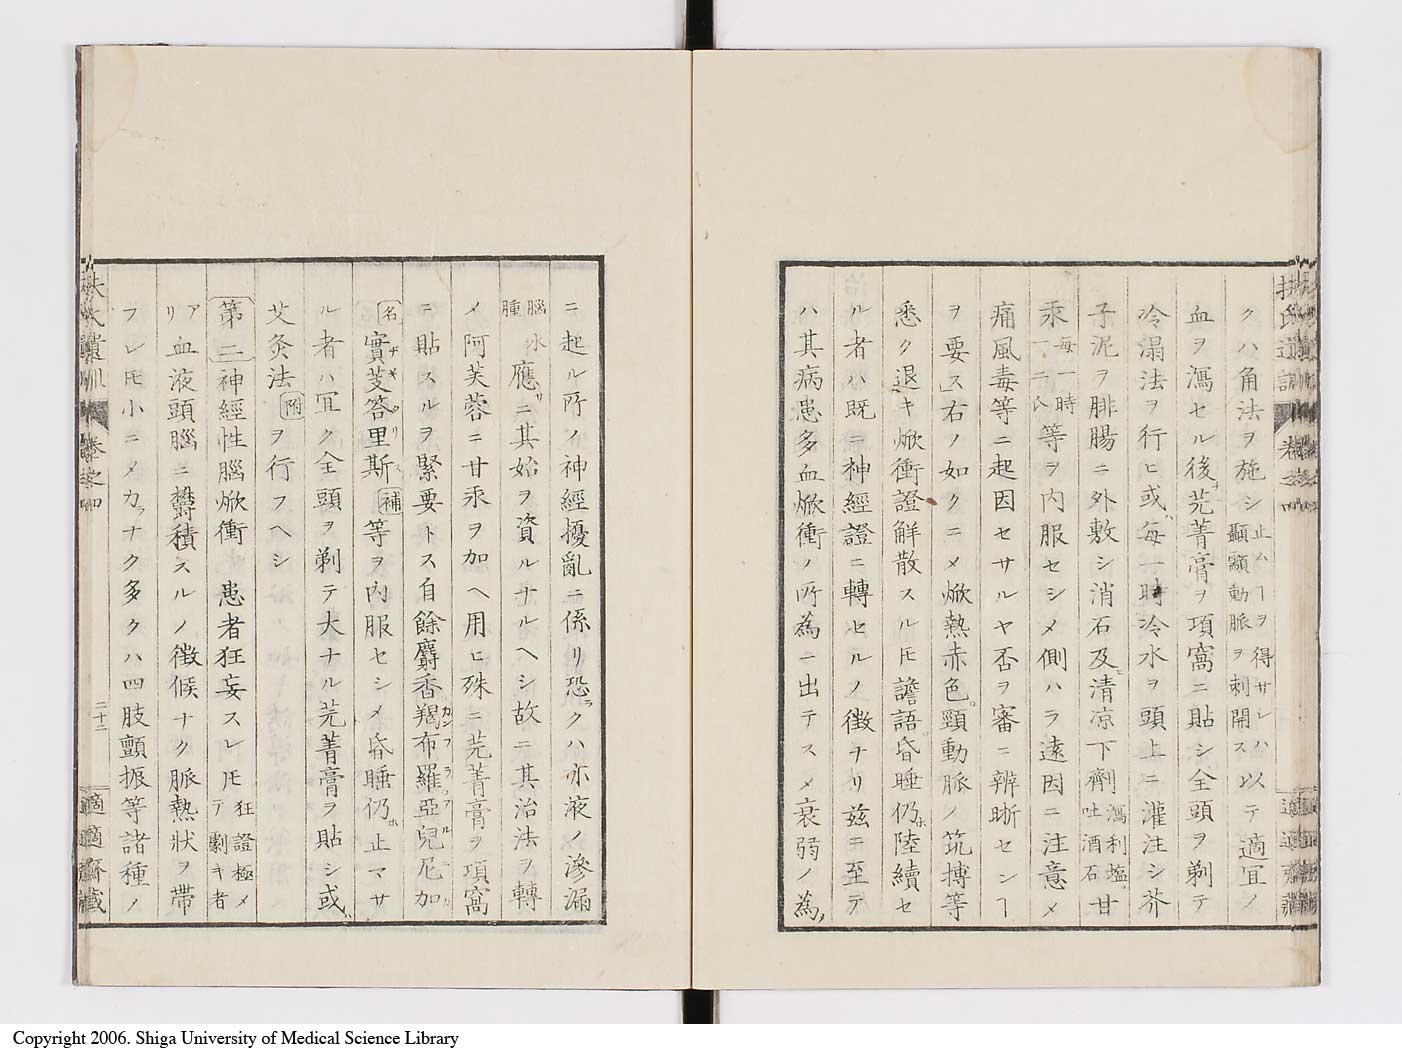 クハ角法ヲ施シ止ムヿヲ得サレハ顳顬動脈ヲ刺開ス以テ適宜ノ
血ヲ瀉セル後チ芫菁膏ヲ項窩ニ貼シ全頭ヲ剃テ
冷溻法ヲ行ヒ或ハ毎一時冷水ヲ頭上ニ灌注シ芥
子泥ヲ腓腸ニ外敷シ消石及ヒ清凉下劑瀉利塩吐酒石甘
汞毎一時一二八等ヲ内服セシメ側ハラ遠因ニ注意メ
痛風毒等ニ起因セサルヤ否ヲ審ニ辨晰センヿ
ヲ要ス」右ノ如クニメ焮熱赤色。頸動脈ノ筑搏等
悉ク退キ焮衝證解散スルㇳモ譫語。昏睡仍ホ陸續セ
ル者ハ既ニ神經證ニ轉セルノ徴ナリ茲ニ至テ
ハ其病患多血焮衝ノ所為ニ出テスメ衰弱ノ為メ
ニ起ル所ノ神經擾亂ニ係リ恐ラクハ亦液ノ滲漏
腦水腫應ニサニ其始ヲ資ルナルヘシ故ニ其治法ヲ轉
メ阿芙蓉ニ甘汞ヲ加ヘ用ヒ殊ニ芫菁膏ヲ項窩
ニ貼スルヲ緊要トス自餘麝香羯布羅亞兒尼加
名實芰答里斯補等ヲ内服セシメ昏睡仍ホ止マサ
ル者ハ冝ク全頭ヲ剃テ大ナル芫菁膏ヲ貼シ或ハ
艾灸法附ヲ行フヘシ
第二神經性腦焮衝 患者狂妄スレㇳモ狂證極メテ劇キ者
アリ血液頭腦ニ欝積スルノ徴候ナク脈熱状ヲ帶
フレㇳモ小ニメカラナク多クハ四肢顫振等諸種ノ
扶氏遺訓 卷之四
二十二
適適齋藏
Copyright 2006. Shiga University of Medical Science Library